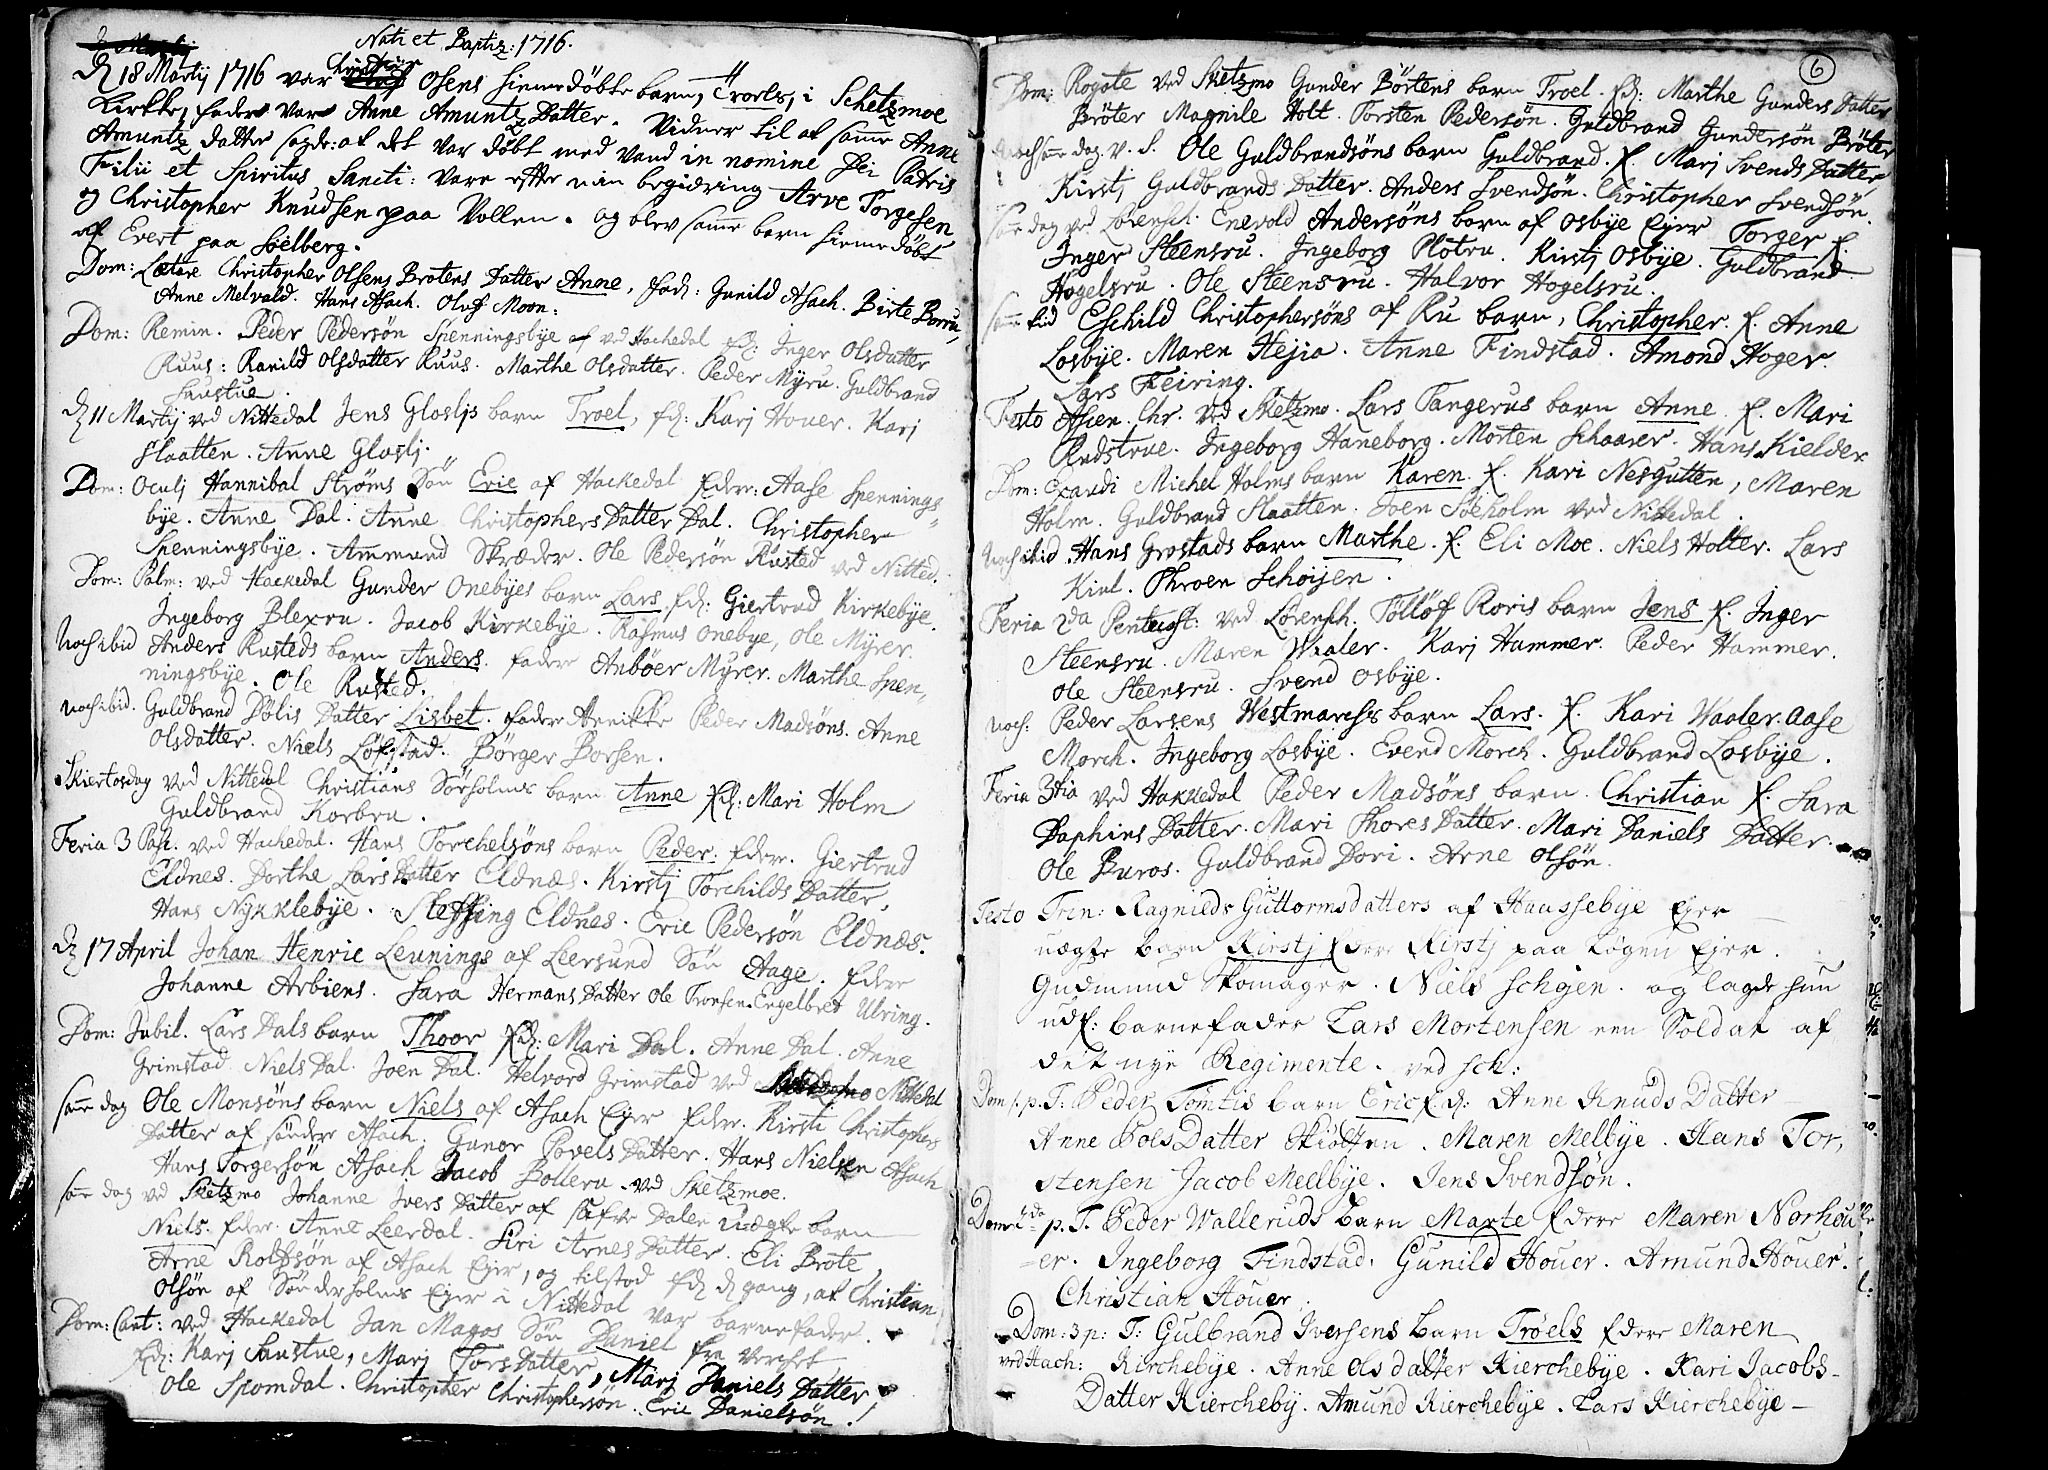 Nati et Baptiz: 1716.
18 Martij 1716 var Osens hiemmedöbte barn, Troels, i Schetzmoe
Kirkke, fadere var Anne Amuntz Datter. Vidner til at samme Anne
Amuntz datter sagde: at det var döbt med vand in nomine Dei Patris
Filii et Spiritus Sancti: vare efter min begiæring Arve Torgesen
og Christopher Knudsen paa Vollen. og blev samme barn hiemmedöbt
af Evert paa Sielberg.
Dom: Lætare Christopher Olsens Brotens Datter Anne, fad: Gunild Asach. Birte Borru,
Anne Melvald. Hans Asach. Oluf Moon:
Dom: Remin. Peder Pedersön Spenningsbye af ved Hackedal fd: Inger Olsdatter
Ruus: Ranild Olsdatter Ruus. Marthe Olsdatter. Peder Myru. Guldbrand
Saustue.
11 Martij ved Nittedal Jens Gloslis barn Troel, fd: Karj Houer. Karj
Slaatten. Anne Gloslj.
Dom: Oculj Hannibal Ströms Sön Eric af Hackedal fdere: Aase Spennings-
bye. Anne Dal. Anne Christophers Datter Dal. Christopher
Spenningsbye. Ammund Skræder. Ole Pedersön Rusted ved Nitted.
Dom: Palm: ved Hackedal Gunder Onebyes barn Lars fd: Giertrud Kirkebye.
Ingeborg Blexru. Jacob Kirkebye. Rasmus Onebye, Ole Myrer.
Noch ibid Anders Rusteds barn Anders. fadere Anböer Myrer. Marthe Spen-
ningsbye. Ole Rusted.
Noch ibid. Guldbrand Dölis Datter Lisbet. fadere Annikke Peder Madsöns. Anne
Olsdatter. Niels Löfstad. Börger Borsen.
Skiertorsdag ved Nittedal Christians Sörholms barn Anne fd: Mari Holm
Guldbrand Korbru.
Feria 3 Pasc. ved Hackedal. Hans Torchelsöns barn Peder: fdere. Giertrud
Eldnes. Dorthe Lars Datter Eldnæs. Kirstj Torchilds Datter,
Hans Nykklebye. Steffing Eldnes. Eric Pedersön Eldnæs.
17 April Johan Henric Leunings af Leersund Sön Aage. fdere
Johanne Arbiens. Sara Hermans Datter Ole Tronsen. Engelbret Ulring.
Dom: Jubil. Lars Dals barn Thoor fd: Mari Dal. Anne Dal. Anne
Grimstad Niels Dal. Joen Dal. Helvord Grimstad ved Nittedal
samme dag Ole Monsöns barn Niels af Asach Eyer fdere. Kirsti Christophers
Datter af söndre Asach. Gunor Povels Datter. Hans Nielsen Asach
Hans Torgersön Asach Jacob Bolleru. ved Sketzmoe.
samme dag ved Sketzmo Johanne Ivers Datter af Dalen uægte barn
Niels. fdere. Anne Leerdal. Siri Arnes Datter. Eli Brote,
Arne Rolfsön af Asach Eyer, og tilstod gang, at Christian
Olsön af Sönderholms Eyer i Nittedal var barnefader.
Dom: Cant: ved Hackedal Jan Magos Sön Daniel fra Verchet
fd: Karj Saustue, Marj Tors Datter, Marj Daniels Datter
Ole Spomdal. Christopher Christophersön. Eric Danielsön.
6
Dom: Rogate ved Sketzmo Gunder Börtens barn Troel. fd: Marthe Gunders Datter
Bröter Magnile Holt. Torsten Pedersön. Guldbrand Gundersön Bröter
Noch samme dag. v. S. Ole Guldbrandsöns barn Guldbrand. f. Marj Svends Datter
Kirstj Guldbrands Datter. Anders Svendsön. Christopher Svendsön.
samme dag ved Lörensch. Enevold Andersöns barn af Osbye Eyer Torger f.
Inger Steensru. Ingeborg Plötru. Kirstj Osbye. Guldbrand
Hogelsru. Ole Steensru. Halvor Hogelsru.
samme tid Eschild Christophersöns af Ru barn, Christopher. f. Anne
Losbye. Maren Hejia. Anne Findstad. Amond Hoger.
Lars Feiring.
Festo Ascen. Chr. ved Sketzmo. Lars Tangerus barn Anne. f. Mari
Rudstrue. Ingeborg Haneborg. Morten Schaarer. Hans Kielder
Dom: Exaudi Michel Holms barn Karen. f. Kari Nesgutten, Maren
Holm. Guldbrand Slaatten. Joen Siöeholm ved Nittedal.
Noch ibid Hans Grostads barn Marthe. f. Eli Moe. Niels Holter. Lars
Kiul. Throen Schöijen.
Feria 2da Pentecost: ved Lörensch. Tollöf Roris barn Jens f. Inger
Steensru. Maren Waaler. Karj Hammer. Peder Hammer.
Ole Steensru. Svend Osbye.
Noch: Peder Larsens Westmarchs barn Lars. f. Kari Waaler. Aase
Morch. Ingeborg Losbye. Evend Morch. Guldbrand Losbye.
Feria 3tia ved Hakkedal Peder Madsöns barn Christian f. Sara
Daphins Datter. Mari Thores Datter. Mari Daniels Datter.
Ole Buros. Guldbrand Dori. Arne Olsön.
Festo Trin: Ragnilds Guttormsdatters af Haussebye Eyer
uægte barn Kirstj fdere Kirstj paa Løgen Ejer.
Gudmund Skomager. Niels Schøjen. og lagde hun
udf: barnefader Lars Mortensen een Soldat af
det nye Regimente. ved Sch:
Dom 1. p. T: Peder Tomtis barn Eric f. d: Anne Knuds Datter
Anne Pols Datter Skiatten. Maren Melbye. Hans Tor,
stensen Jacob Mellbye. Jens Svendsøn.
Dom: 2da p. T. Peder Walleruds barn Marte fdere Maren Norhou
er. Ingeborg Findstad. Gunild Houer. Amund Houer.
Christian Houer.
Dom: 3 p: T: Gulbrand Iversens barn Trøels fdere Maren
ved Hach: Kirchebije. Anne Olsdatter Kierchebije. Kari Jacobs-
Datter Kiercheby. Amund Kierchebije. Lars Kierchebije